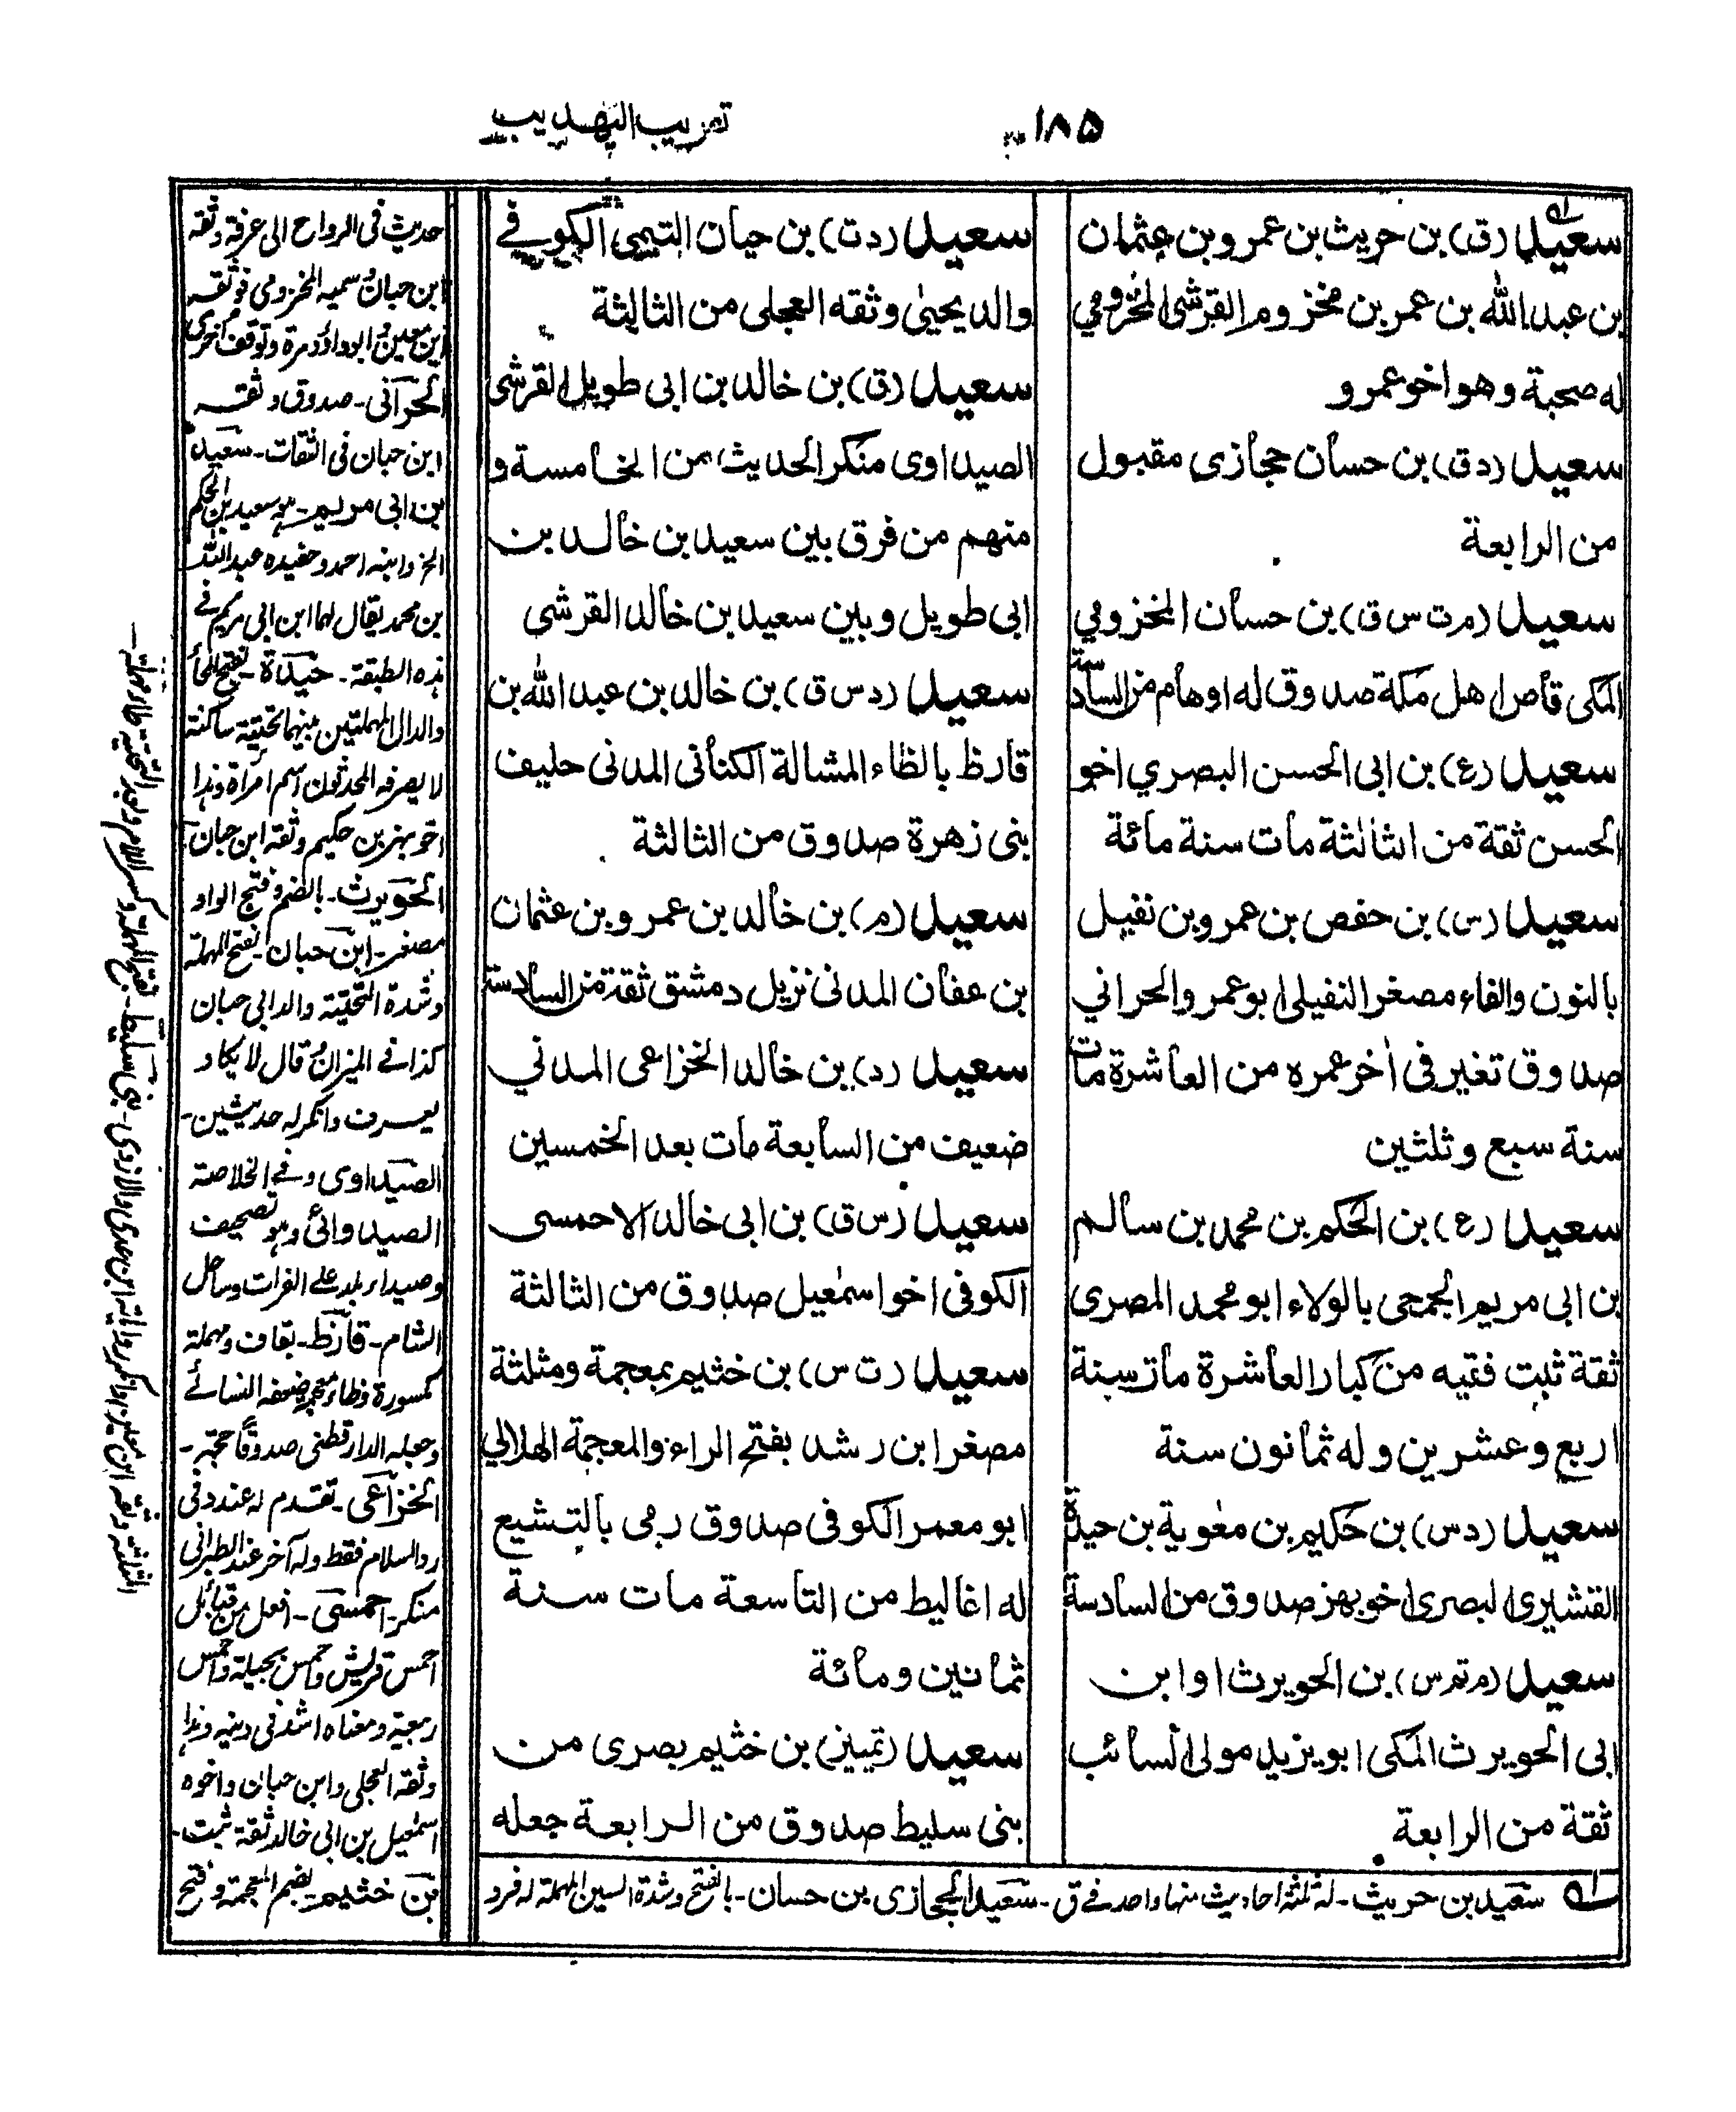 ١٨٥
تقريب التهذيب
سعيد (ق) بن حريث بن عمرو بن عثمان
بن عبد الله بن عمر بن مخزوم القرشي المخزومي
له صحبة وهو اخو عمرو
سعيد (د ق) بن حسان حجازي مقبول
من الرابعة
سعيد (م ت س ق) بن حسان المخزومي
المكي قاص اهل مكة صدوق له اوهام من السادسة
سعيد (ع) بن ابي الحسن البصري اخو
الحسن ثقة من الثالثة مات سنة مائة
سعيد (س) بن حفص بن عمرو بن نفيل
بالنون والفاء مصغر النفيلي ابو عمرو الحراني
صدوق تغير في اخر عمره من العاشرة مات
سنة سبع وثلثين
سعيد (ع) بن الحكم بن محمد بن سالم
بن ابي مريم الجمحي بالولاء ابو محمد المصري
ثقة ثبت فقيه من كبار العاشرة مات سنة
اربع وعشرين وله ثمانون سنة
سعيد (د س) بن حكيم بن معٰوية بن حيدة
القشيري البصري اخو بهز صدوق من السادسة
سعيد (م تم س) بن الحويرث او ابن
ابي الحويرث المكي ابو يزيد مولى السائب
ثقة من الرابعة
سعيد (د ت) بن حيان التيمي الكوفي
والد يحيىٰ وثقه العجلي من الثالثة
سعيد (ق) بن خالد بن ابي طويل القرشي
الصيداوي منكر الحديث من الخامسة و
منهم من فرق بين سعيد بن خالد بن
ابي طويل وبين سعيد بن خالد القرشي
سعيد (د س ق) بن خالد بن عبد الله بن
قارظ بالظاء المشالة الكناني المدني حليف
بني زهرة صدوق من الثالثة
سعيد (م) بن خالد بن عمرو بن عثمان
بن عفان المدني نزيل دمشق ثقة من السادسة
سعيد (د) بن خالد الخزاعي المدني
ضعيف من السابعة مات بعد الخمسين
سعيد (س ق) بن ابي خالد الاحمسي
الكوفي اخو اسمٰعيل صدوق من الثالثة
سعيد (ت س) بن خثيم بمعجمة ومثلثة
مصغر ابن رشد بفتح الراء والمعجمة الهلالي
ابو معمر الكوفي صدوق رمي بالتشيع
له اغاليط من التاسعة مات سنة
ثمانين ومائة
سعيد (تمييز) بن خثيم بصري من
بني سليط صدوق من الرابعة جعله
سعيد بن حريث - له ثلثة احاديث منها واحد في ق - سعيد الحجازي بن حسان - بالفتح وشدة السين المهملة له فرد
حديث في الرواح الى عرفة وثقه
ابن حبان وسميه المخزومي فوثقه
ابن معين وابو داؤد مرة وتوقف اخرى
الحراني - صدوق وثقه
ابن حبان في الثقات - سعيد
بن ابي مريم - هو سعيد بن الحكم
الخ وابنه احمد وحفيده عبد الله
بن محمد يقال لهما ابن ابي مريم في
هذه الطبقة - حيدة - بفتح الحاء
والدال المهملتين بينهما تحتية ساكنة
لا يصرفه المحدثون اسم امرأة وهذا
اخو بهز بن حكيم وثقه ابن حبان -
الحويرث - بالضم وفتح الواو
مصغر - ابن حبان - بفتح المهملة
وشدة التحتية والد ابي حيان
كذا في الميزان وقال لا يكاد
يعرف وانكر له حديثين -
الصيداوي وفي الخلاصة
الصيداوائي وهو تصحيف
وصيداء بلد على الفرات وساحل
الشام - قارظ - بقاف ومهملة
مكسورة وظاء معجمة ضعفه النسائي
وجعله الدارقطني صدوقا حجة -
الخزاعي - تقدم له عند د في
رد السلام فقط وله آخر عند الطبراني
منكر - احمسي - افعل من قبائل
احمس قريش واحمس بجيلة واحمس
ربيعة ومعناه اشد في دينه وهذا
وثقه العجلي وابن حبان واخوه
اسمٰعيل بن ابي خالد ثقة ثبت -
بن خثيم - بضم المعجمة وفتح
المثلثة وثقه ابن معين